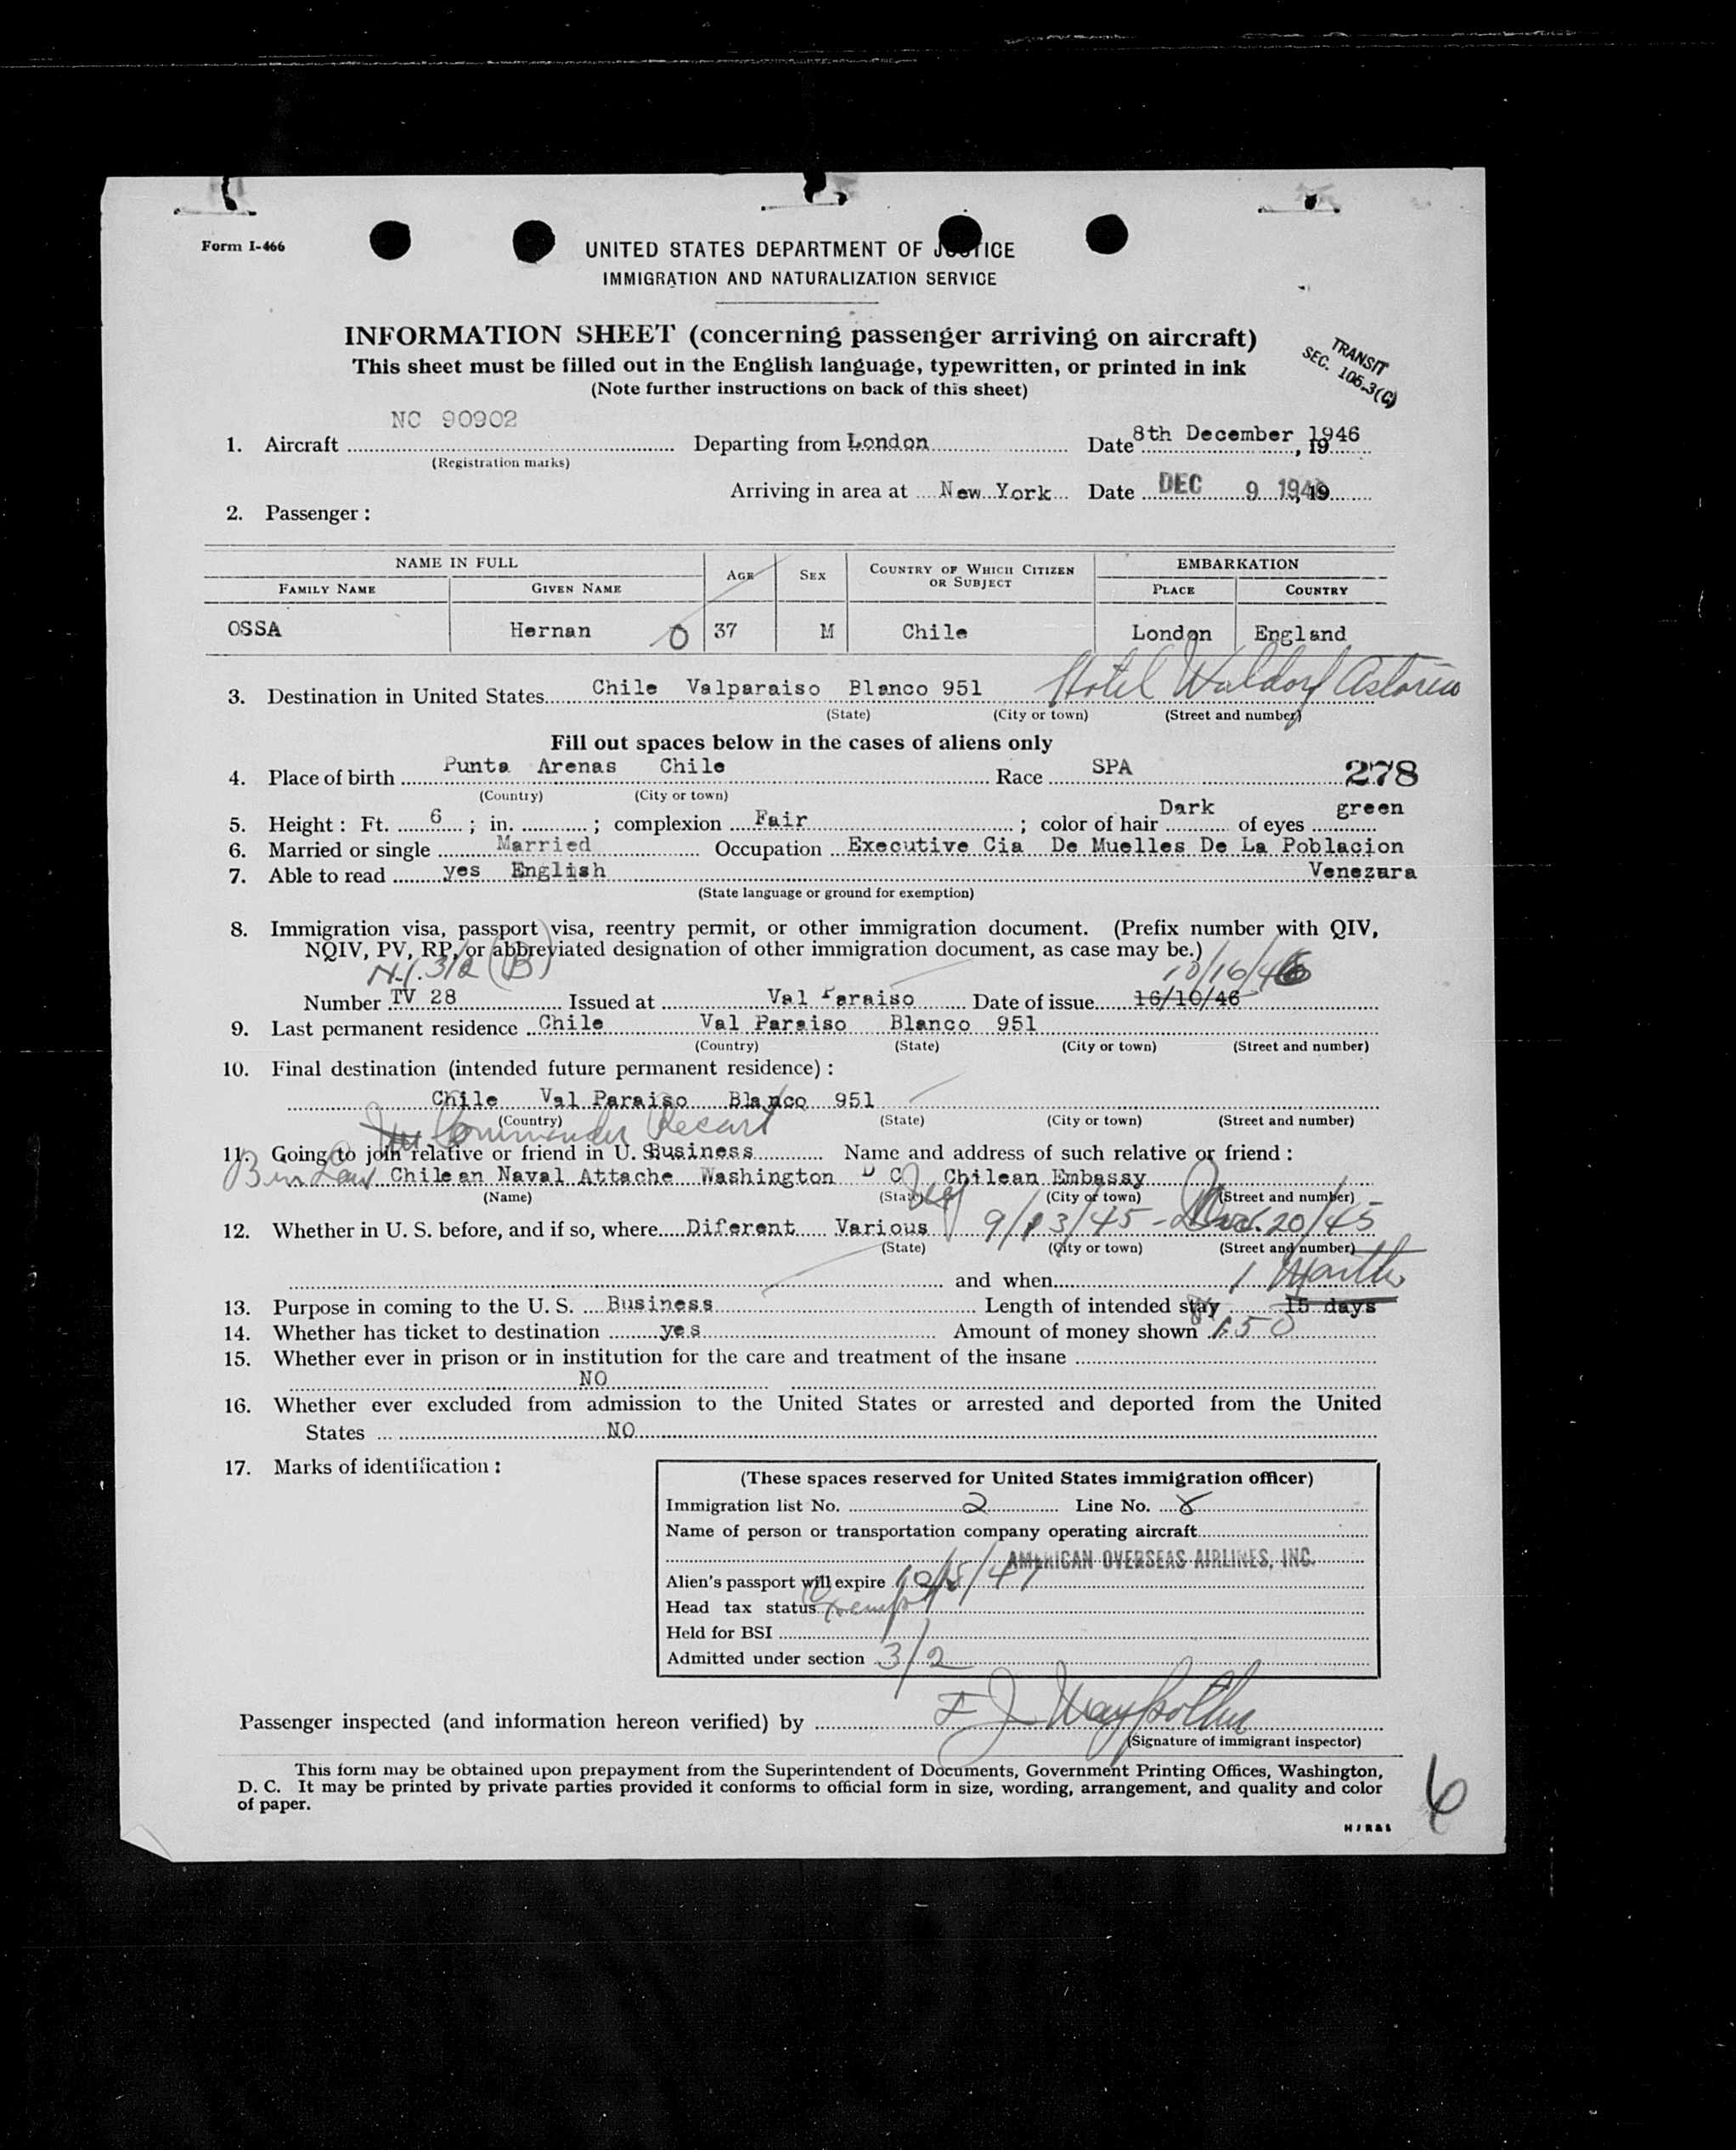 Form I-466
UNITED STATES DEPARTMENT OF JUSTICE
IMMIGRATION AND NATURALIZATION SERVICE
INFORMATION SHEET (concerning passenger arriving on aircraft)
This sheet must be filled out in the English language, typewritten, or printed in ink
(Note further instructions on back of this sheet)
TRANSIT
SEC. 105.3(G)
NC 90902
1. Aircraft Departing from London Date 8th December 1946, 19
(Registration marks)
Arriving in area at New York Date DEC 9 1946, 19
2. Passenger:
NAME IN FULL AGE SEX COUNTRY OF WHICH CITIZEN OR SUBJECT EMBARKATION
FAMILY NAME GIVEN NAME PLACE COUNTRY
OSSA Hernan O 37 M Chile London England
3. Destination in United States Chile Valparaiso Blanco 951 Hotel Waldorf Astoria
(State) (City or town) (Street and number)
Fill out spaces below in the cases of aliens only
4. Place of birth Punta Arenas Chile Race SPA 278
(Country) (City or town)
5. Height: Ft. 6; in. ; complexion Fair; color of hair Dark of eyes green
6. Married or single Married Occupation Executive Cia De Muelles De La Poblacion
7. Able to read yes English Venezura
(State language or ground for exemption)
8. Immigration visa, passport visa, reentry permit, or other immigration document. (Prefix number with QIV,
NQIV, PV, RP, or abbreviated designation of other immigration document, as case may be.)
3/2 (B) 10/16/46
Number TV 28 Issued at Val Paraiso Date of issue 16/10/46
9. Last permanent residence Chile Val Paraiso Blanco 951
(Country) (State) (City or town) (Street and number)
10. Final destination (intended future permanent residence):
Chile Val Paraiso Blanco 951
(Country) (State) (City or town) (Street and number)
Commander Recart
11. Going to join relative or friend in U. S. Business Name and address of such relative or friend:
B in Law Chilean Naval Attache Washington D C Chilean Embassy
(Name) (State) (City or town) (Street and number)
12. Whether in U. S. before, and if so, where Diferent Various 9/13/45 - 20/45
(State) (City or town) (Street and number)
and when 1 Month
13. Purpose in coming to the U. S. Business Length of intended stay 15 days
14. Whether has ticket to destination yes Amount of money shown 150
15. Whether ever in prison or in institution for the care and treatment of the insane
NO
16. Whether ever excluded from admission to the United States or arrested and deported from the United
States NO
17. Marks of identification:
(These spaces reserved for United States immigration officer)
Immigration list No. 2 Line No. 8
Name of person or transportation company operating aircraft
AMERICAN OVERSEAS AIRLINES, INC.
Alien's passport will expire
Head tax status Exempt
Held for BSI
Admitted under section 3/2
Passenger inspected (and information hereon verified) by
(Signature of immigrant inspector)
This form may be obtained upon prepayment from the Superintendent of Documents, Government Printing Offices, Washington,
D. C. It may be printed by private parties provided it conforms to official form in size, wording, arrangement, and quality and color
of paper.
6